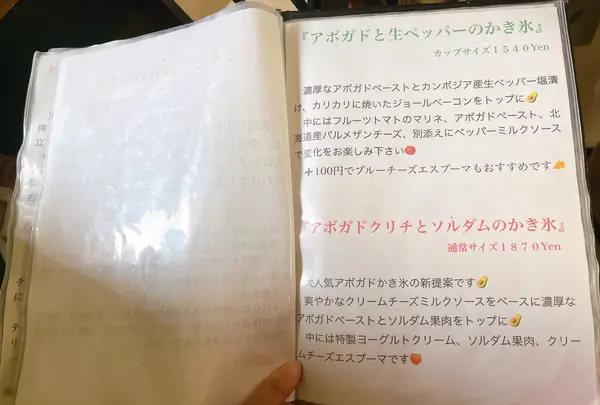 『アボガドと生ペッパーのかき氷』
カップサイズ1540Yen
濃厚なアボガドペーストとカンボジア産生ペッパー塩漬
け、カリカリに焼いたジョールベーコンをトップに🥑
中にはフルーツトマトのマリネ、アボガドペースト、北
海道産パルメザンチーズ、別添えにペッパーミルクソース
で変化をお楽しみ下さい🍅
＋100円でブルーチーズエスプーマもおすすめです🧀
『アボガドクリチとソルダムのかき氷』
通常サイズ1870Yen
大人気アボガドかき氷の新提案です🥑
爽やかなクリームチーズミルクソースをベースに濃厚な
アボガドペーストとソルダム果肉をトップに🥑
中には特製ヨーグルトクリーム、ソルダム果肉、クリー
ムチーズエスプーマです🍑